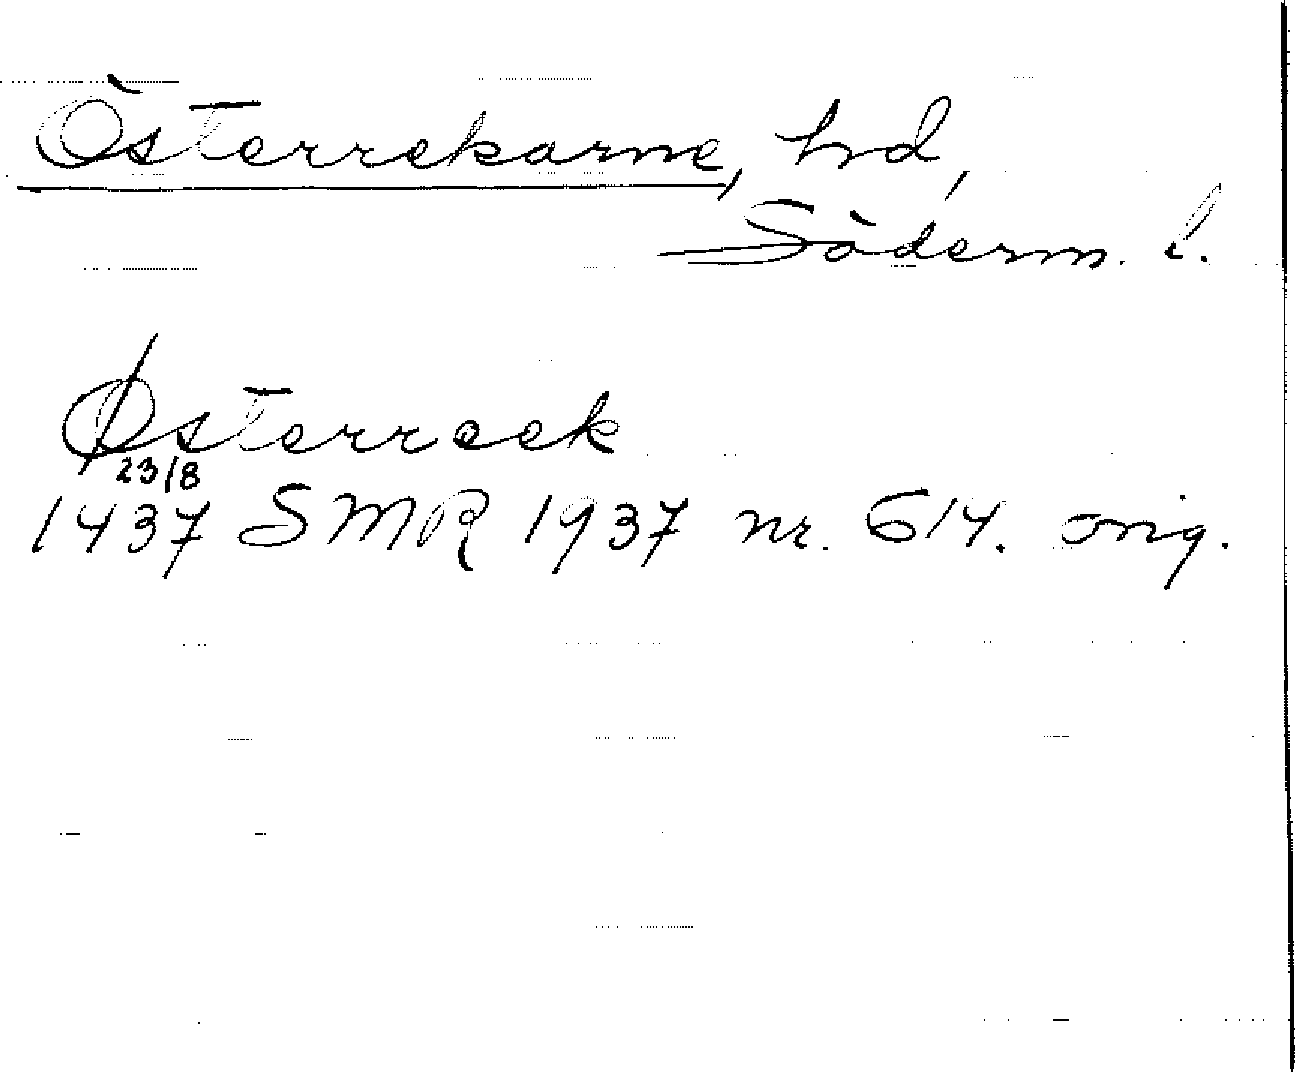 Österrekarne, hd,
Söderm. l.
Østerreek
23/8
1437 SMR 1937 nr. 614. orig.